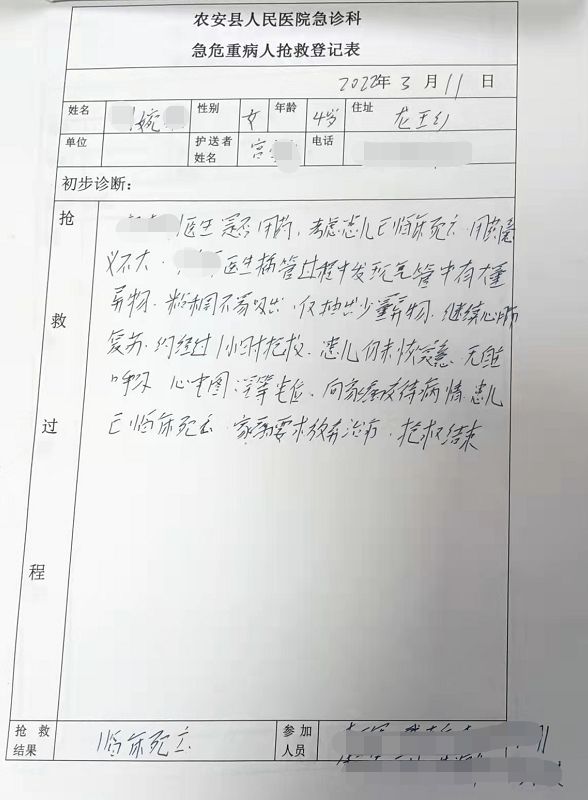 农安县人民医院急诊科
急危重病人抢救登记表
2022年 3 月 11 日
姓名 婉 性别 女 年龄 4岁 住址 龙王乡
单位 护送者姓名 宫 电话
初步诊断：
抢救过程
医生 是否用药，考虑患儿已临床死亡 用药意
义不大. 医生 插管过程中发现气管中有大量
异物. 粘稠不易吸出，仅抽出少量异物. 继续心肺
复苏. 约经过1小时抢救. 患儿仍未恢复意, 无自
呼吸 心电图: 等电位, 向家属交待病情 患儿
已临床死亡. 家属要求放弃治疗, 抢救结束
抢救结果 临床死亡 参加人员